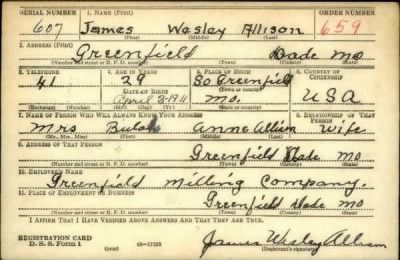 SERIAL NUMBER 1. NAME (Print) ORDER NUMBER
607 James Wesley Allison 659
(First) (Middle) (Last)
2. ADDRESS (Print)
Greenfield Dade Mo
(Number and street or R. F. D. number) (Town) (County) (State)
3. TELEPHONE 4. AGE IN YEARS 5. PLACE OF BIRTH 6. COUNTRY OF CITIZENSHIP
41 29 So Greenfield
DATE OF BIRTH (Town or county)
April 3-1911 Mo. USA
(Exchange) (Number) (Mo.) (Day) (Yr.) (State or country)
7. NAME OF PERSON WHO WILL ALWAYS KNOW YOUR ADDRESS 8. RELATIONSHIP OF THAT PERSON
Mrs Bulah Anne Allison Wife
(Mr., Mrs., Miss) (First) (Middle) (Last)
9. ADDRESS OF THAT PERSON
Greenfield Dade Mo
(Number and street or R. F. D. number) (Town) (County) (State)
10. EMPLOYER'S NAME
Greenfield Milling Company.
11. PLACE OF EMPLOYMENT OR BUSINESS
Greenfield Dade Mo
(Number and street or R. F. D. number) (Town) (County) (State)
I AFFIRM THAT I HAVE VERIFIED ABOVE ANSWERS AND THAT THEY ARE TRUE.
REGISTRATION CARD
D. S. S. Form 1 James Wesley Allison
(Registrant's signature)